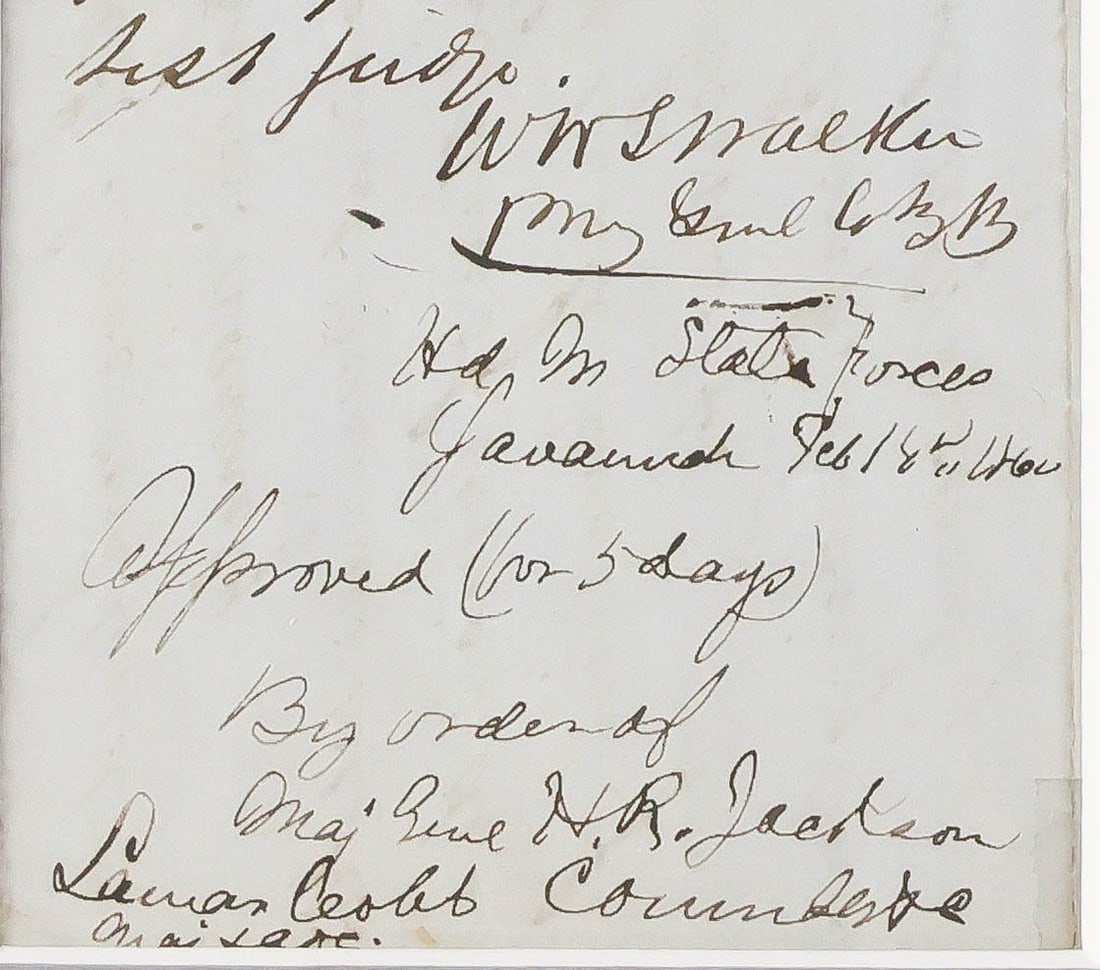 best judge.
W H S Walker
Brig Genl Co
Hd Qr State Forces
Savannah Feb 18th 1862
Approved (for 5 days)
By order of
Maj Genl H. R. Jackson
Lamar Cobb Commdg
Maj &